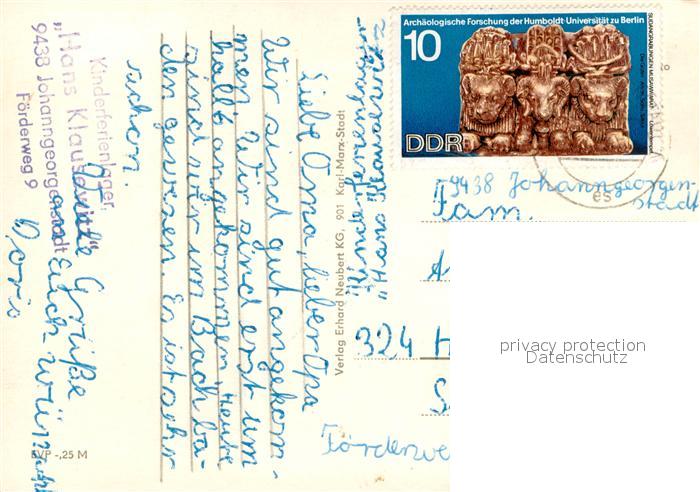 Liebe Oma, lieber Opa
Wir sind gut angekom-
men. Wir sind erst um
halb angekommen, Heute
sind wir im Bach ba-
den gewesen. Es ist sehr
schon.
Viele Grüße
euch wünscht
Doris
Kinderferienlager,
„Hans Klausewitz"
9438 Johanngeorgenstadt
Förderweg 9
EVP -,25 M
Verlag Erhard Neubert KG, 901 Karl-Marx-Stadt
Archäologische Forschung der Humboldt-Universität zu Berlin
10
DDR
Kinderferienlager
"Hans Klausewitz
9438 Johanngeorgen-
stadt
Fam.
324 H
Förderwe
privacy protection
Datenschutz